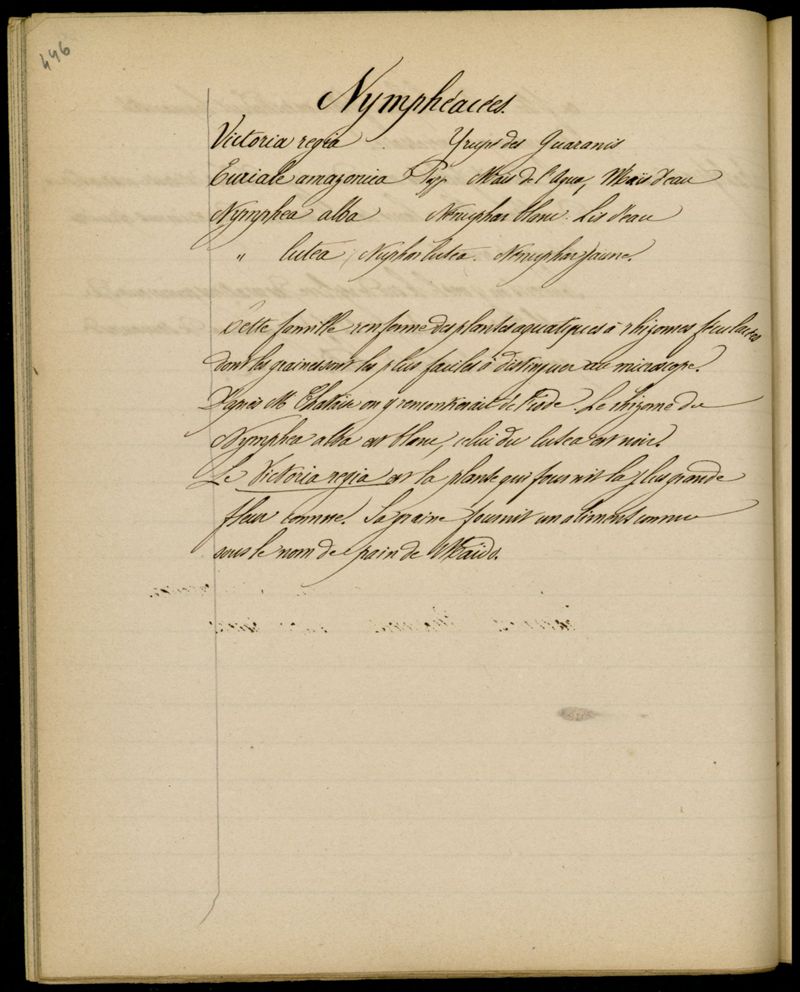 496
Nymphéacées.
Victoria regia Yrupé des Guaranis
Euriale amazonica Pop. Maïs de l'Agua, Maïs d'eau
Nymphea alba Nénuphar blanc. Lis d'eau
" lutea, Nuphar lutea. Nénuphar jaune.
Cette famille renferme des plantes aquatiques à rhizomes féculents
dont les graines sont les plus faciles à distinguer au microscope.
D'après M. Chatin on y remontrerait de l'iode. Le rhizome du
Nymphea alba est blanc, celui du lutea est noir.
Le Victoria regia est la plante qui fournit la plus grande
fleur connue. Sa graine fournit un aliment connu
sous le nom de pain de Maïs.